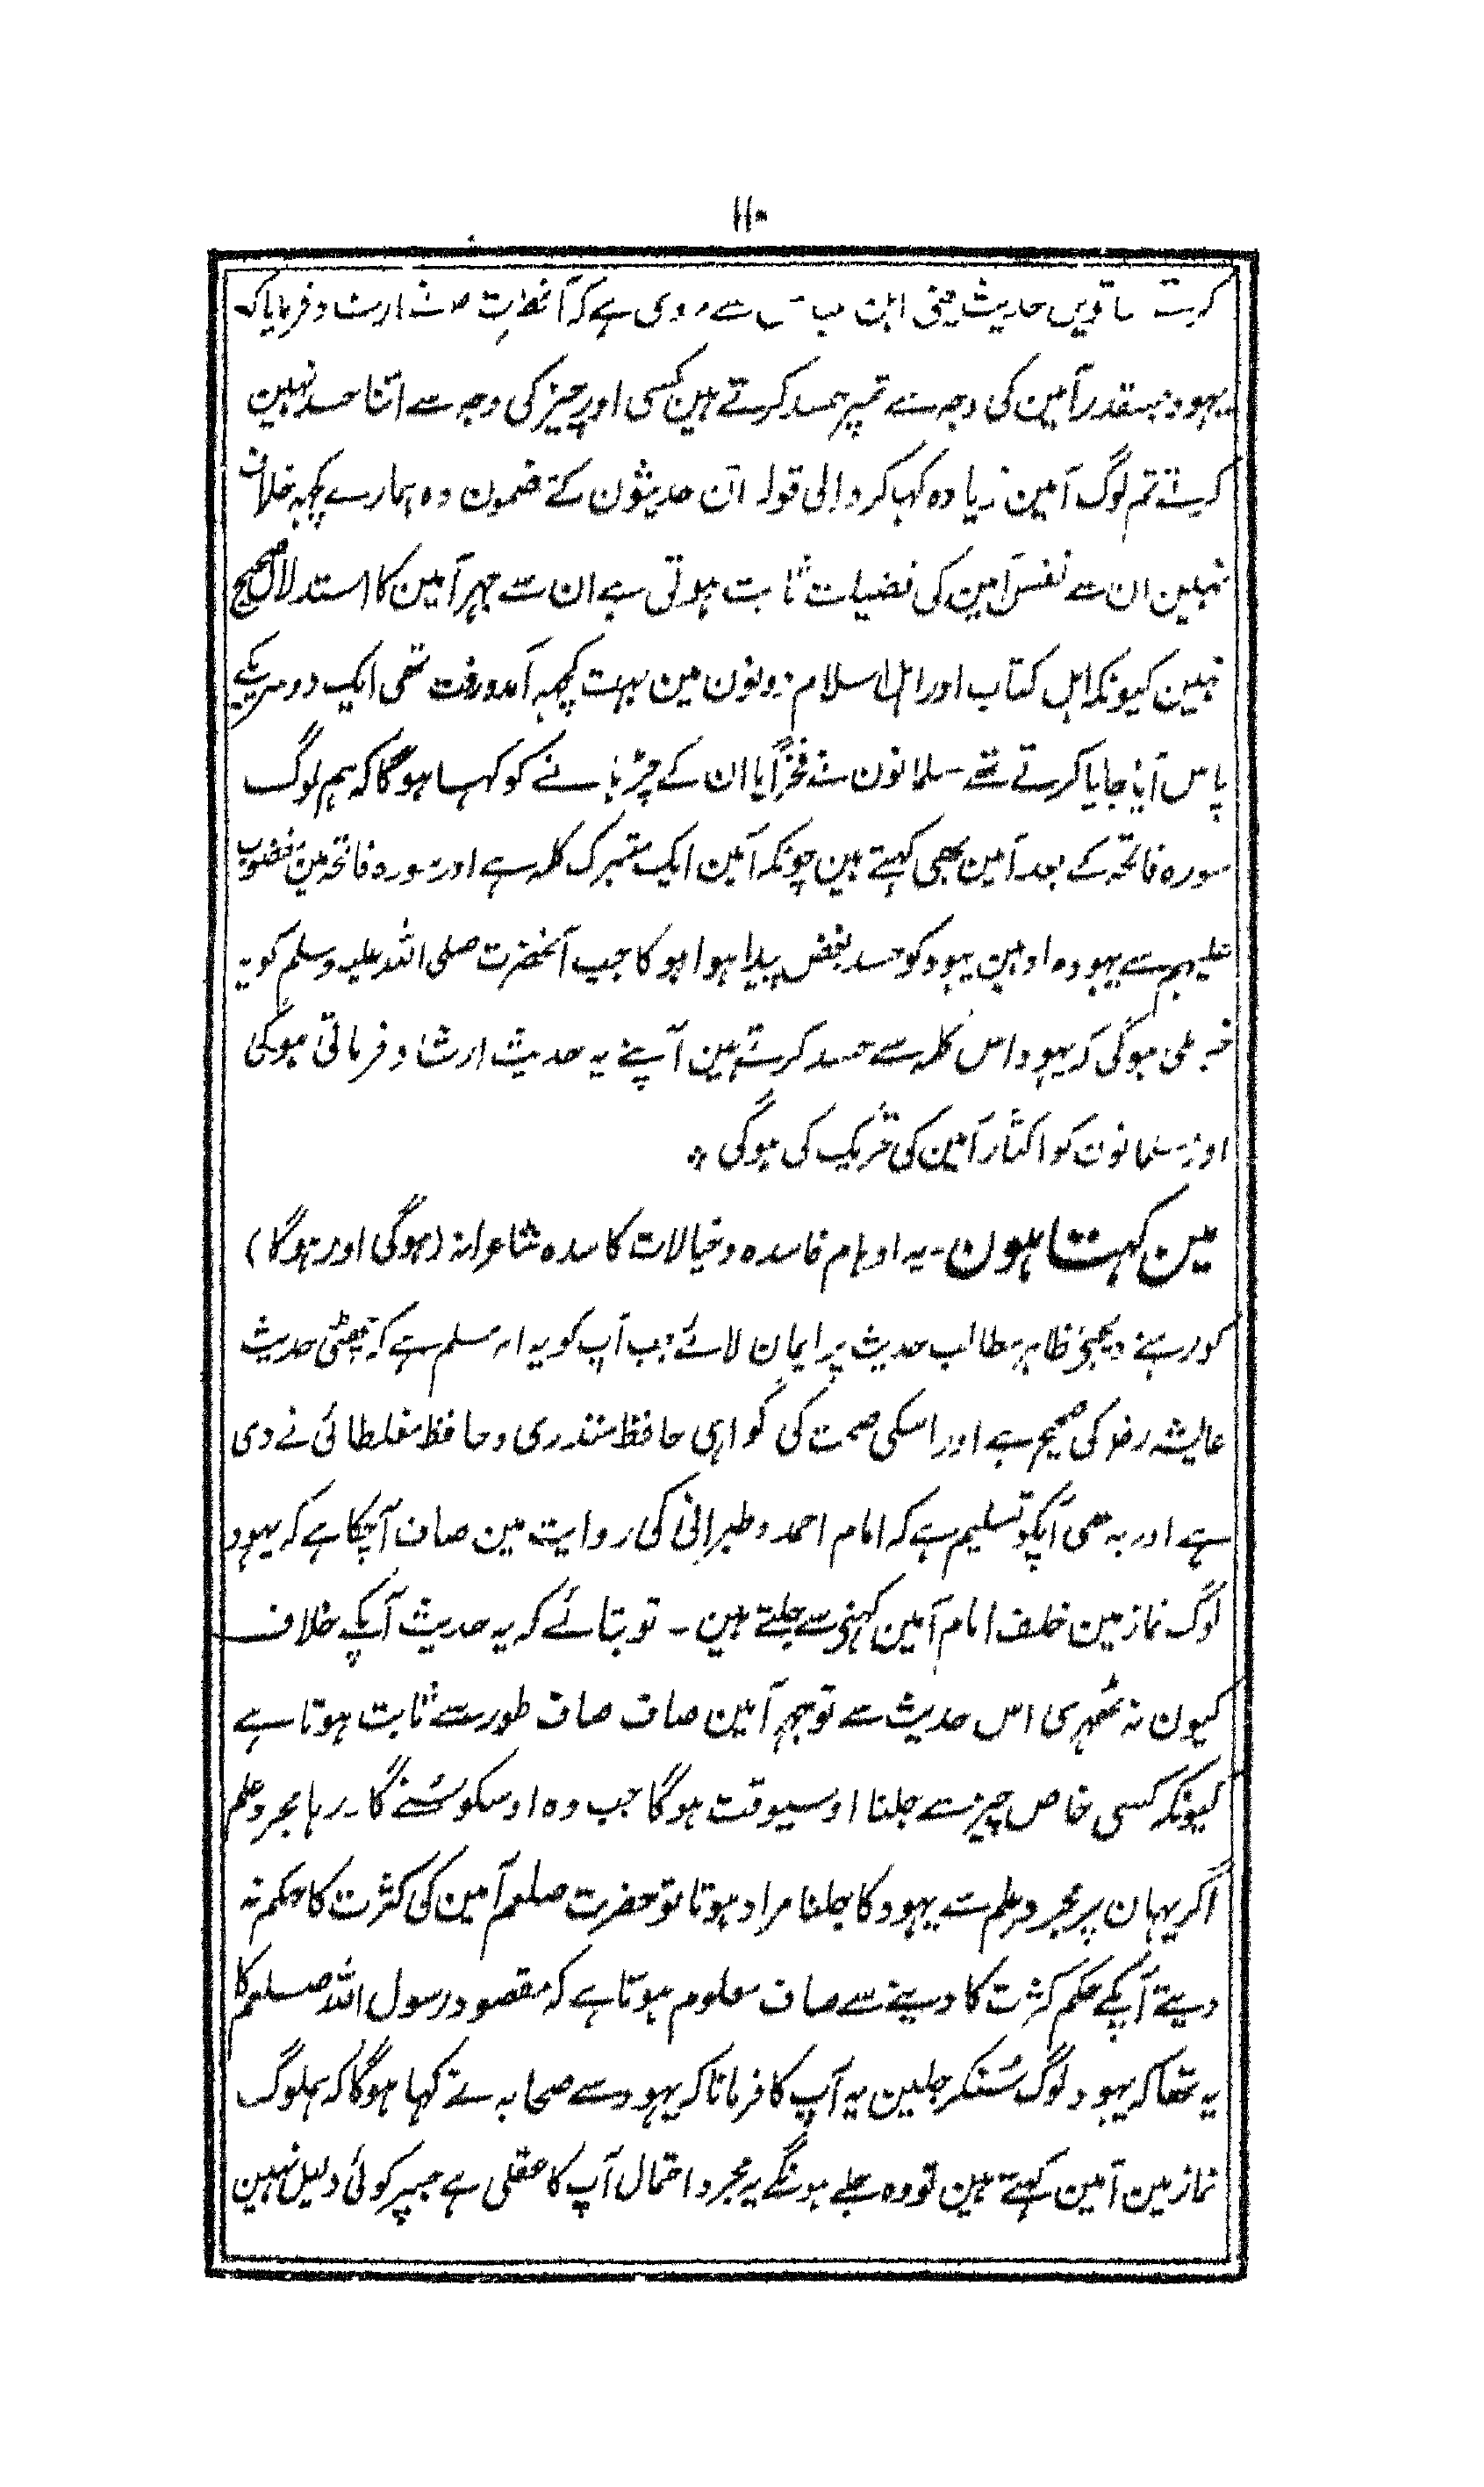 ۱۱۰
کرتے ساتویں حدیث یعنی ابن عباس سے مروی ہے کہ آنحضرت نے ارشاد فرمایا کہ
یہود جسقدر آمین کی وجہ سے تمپر حسد کرتے ہین کسی اور چیز کی وجہ سے اتنا حسد نہین
کرتے تم لوگ آمین زیادہ کہا کرو الی قولہ ان حدیثون کے مضمون وہ ہمارے کچہہ خلاف
نہین ان سے نفس آمین کی فضیلت ثابت ہوتی ہے ان سے جہر آمین کا استدلال صحیح
نہین کیونکہ اہل کتاب اور اہل اسلام دونون مین بہت کچہہ آمدورفت تھی ایک دوسریکے
پاس آیا جایا کرتے تھے مسلمانون نے فخراً یا ان کے چڑہانے کو کہا ہوگا کہ ہم لوگ
سورہ فاتحہ کے بعد آمین بھی کہتے ہین چونکہ آمین ایک متبرک کلمہ ہے اور سورہ فاتحہ مین مغضوب
علیہم سے یہود مراد ہین یہود کو حسد بغض پیدا ہوا ہوگا جب آنحضرت صلی اللہ علیہ وسلم کو یہ
خبر ملی ہوگی کہ یہود اس کلمہ سے حسد کرتے ہین آپنے یہ حدیث ارشاد فرمائی ہوگی
اور مسلمانون کو اکثار آمین کی تحریک کی ہوگی ٭
مین کہتا ہون۔ یہ اوہام فاسدہ و خیالات کاسدہ شاعرانہ (ہوگی اور ہوگا)
کو رہنے دیجئے ظاہر مطالب حدیث پر ایمان لائے جب آپ کو یہ امر مسلم ہے کہ چھٹی حدیث
عایشہ رضو کی صحیح ہے اور اسکی صحت کی گواہی حافظ منذری و حافظ مغلطائی نے دی
ہے اور یہ بھی آپکو تسلیم ہے کہ امام احمد و طبرانی کی روایت مین صاف آچکا ہے کہ یہود
لوگ نماز مین خلف امام آمین کہنے سے جلتے ہین ۔ تو بتائے کہ یہ حدیث آپکے خلاف
کیون نہ ٹھہری اس حدیث سے تو جہر آمین صاف صاف طور سے ثابت ہوتا ہے
کیونکہ کسی خاص چیز سے جلنا اوسیوقت ہوگا جب وہ اوسکو سُنے گا۔ رہا مجرد علم
اگر یہان پر مجرد علم سے یہود کا جلنا مراد ہوتا تو حضرت صلعم آمین کی کثرت کا حکم نہ
دیتے آپکے حکم کثرت کا دینے سے صاف معلوم ہوتا ہے کہ مقصود رسول اللہ صلعم کا
یہ تھا کہ یہود لوگ سُنکر جلین یہ آپ کا فرمانا کہ یہود سے صحابہ نے کہا ہوگا کہ ہملوگ
نماز مین آمین کہتے ہین تو وہ جلے ہونگے یہ مجرد احتمال آپ کا عقلی ہے جسپر کوئی دلیل نہین